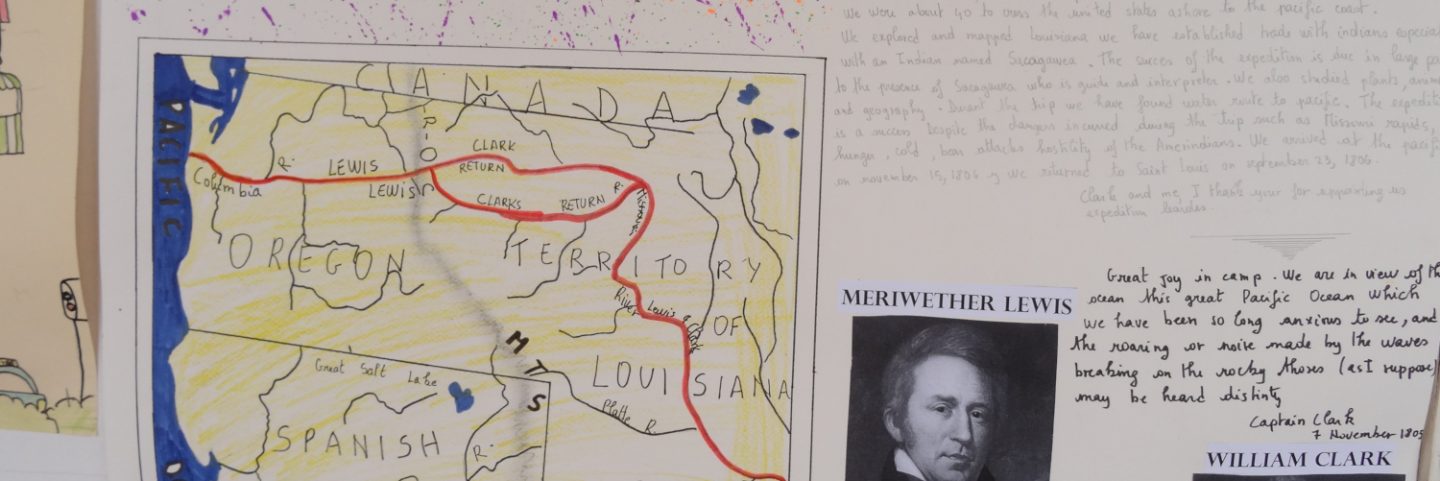 CANADA
PACIFIC
R.
CLARK
LEWIS
RETURN
Columbia
LEWIS
CLARKS RETURN R.
Missouri
OREGON
TEBRITORY
River Lewis & Clark
OF
MTS
LOUISIANA
Great Salt Lake
Platte R.
SPANISH
R.
We were about 40 to cross the united states ashore to the pacific coast.
We explored and mapped Louisiana we have established trade with indians especial
with an Indian named Sacagawea. The succes of the expedition is due in large pa
to the presence of Sacagawea who is guide and interpreter. We also studied plants, anim
and geography. Durant the trip we have found water route to pacific. The expediti
is a success despite the dangers incurred during the trip such as Missouri rapids,
hunger, cold, bear attacks hostility of the Amerindians. We arrived at the pacific
on november 15, 1805 we returned to Saint Louis on september 23, 1806.
Clark and me, I thank your for supporting us
expedition leader.
Great joy in camp. We are in view of th
ocean this great Pacific Ocean which
we have been so long anxious to see, and
the roaring or noise made by the waves
breaking on the rocky shores (as I suppose)
may be heard distinty
Captain Clark
7 November 1805
MERIWETHER LEWIS
WILLIAM CLARK